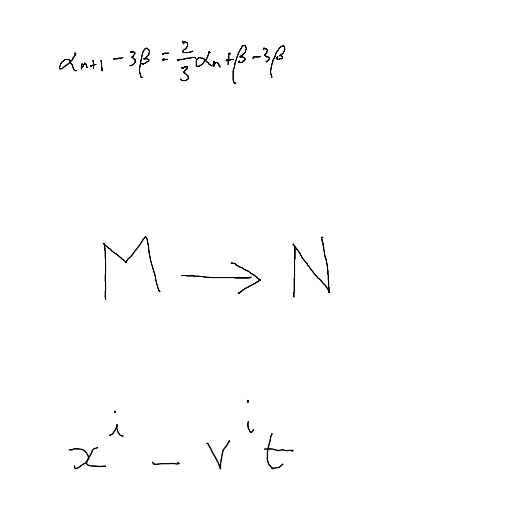 αₙ₊₁ − 3β = 2/3 αₙ + β − 3β
M → N
xⁱ − vⁱt